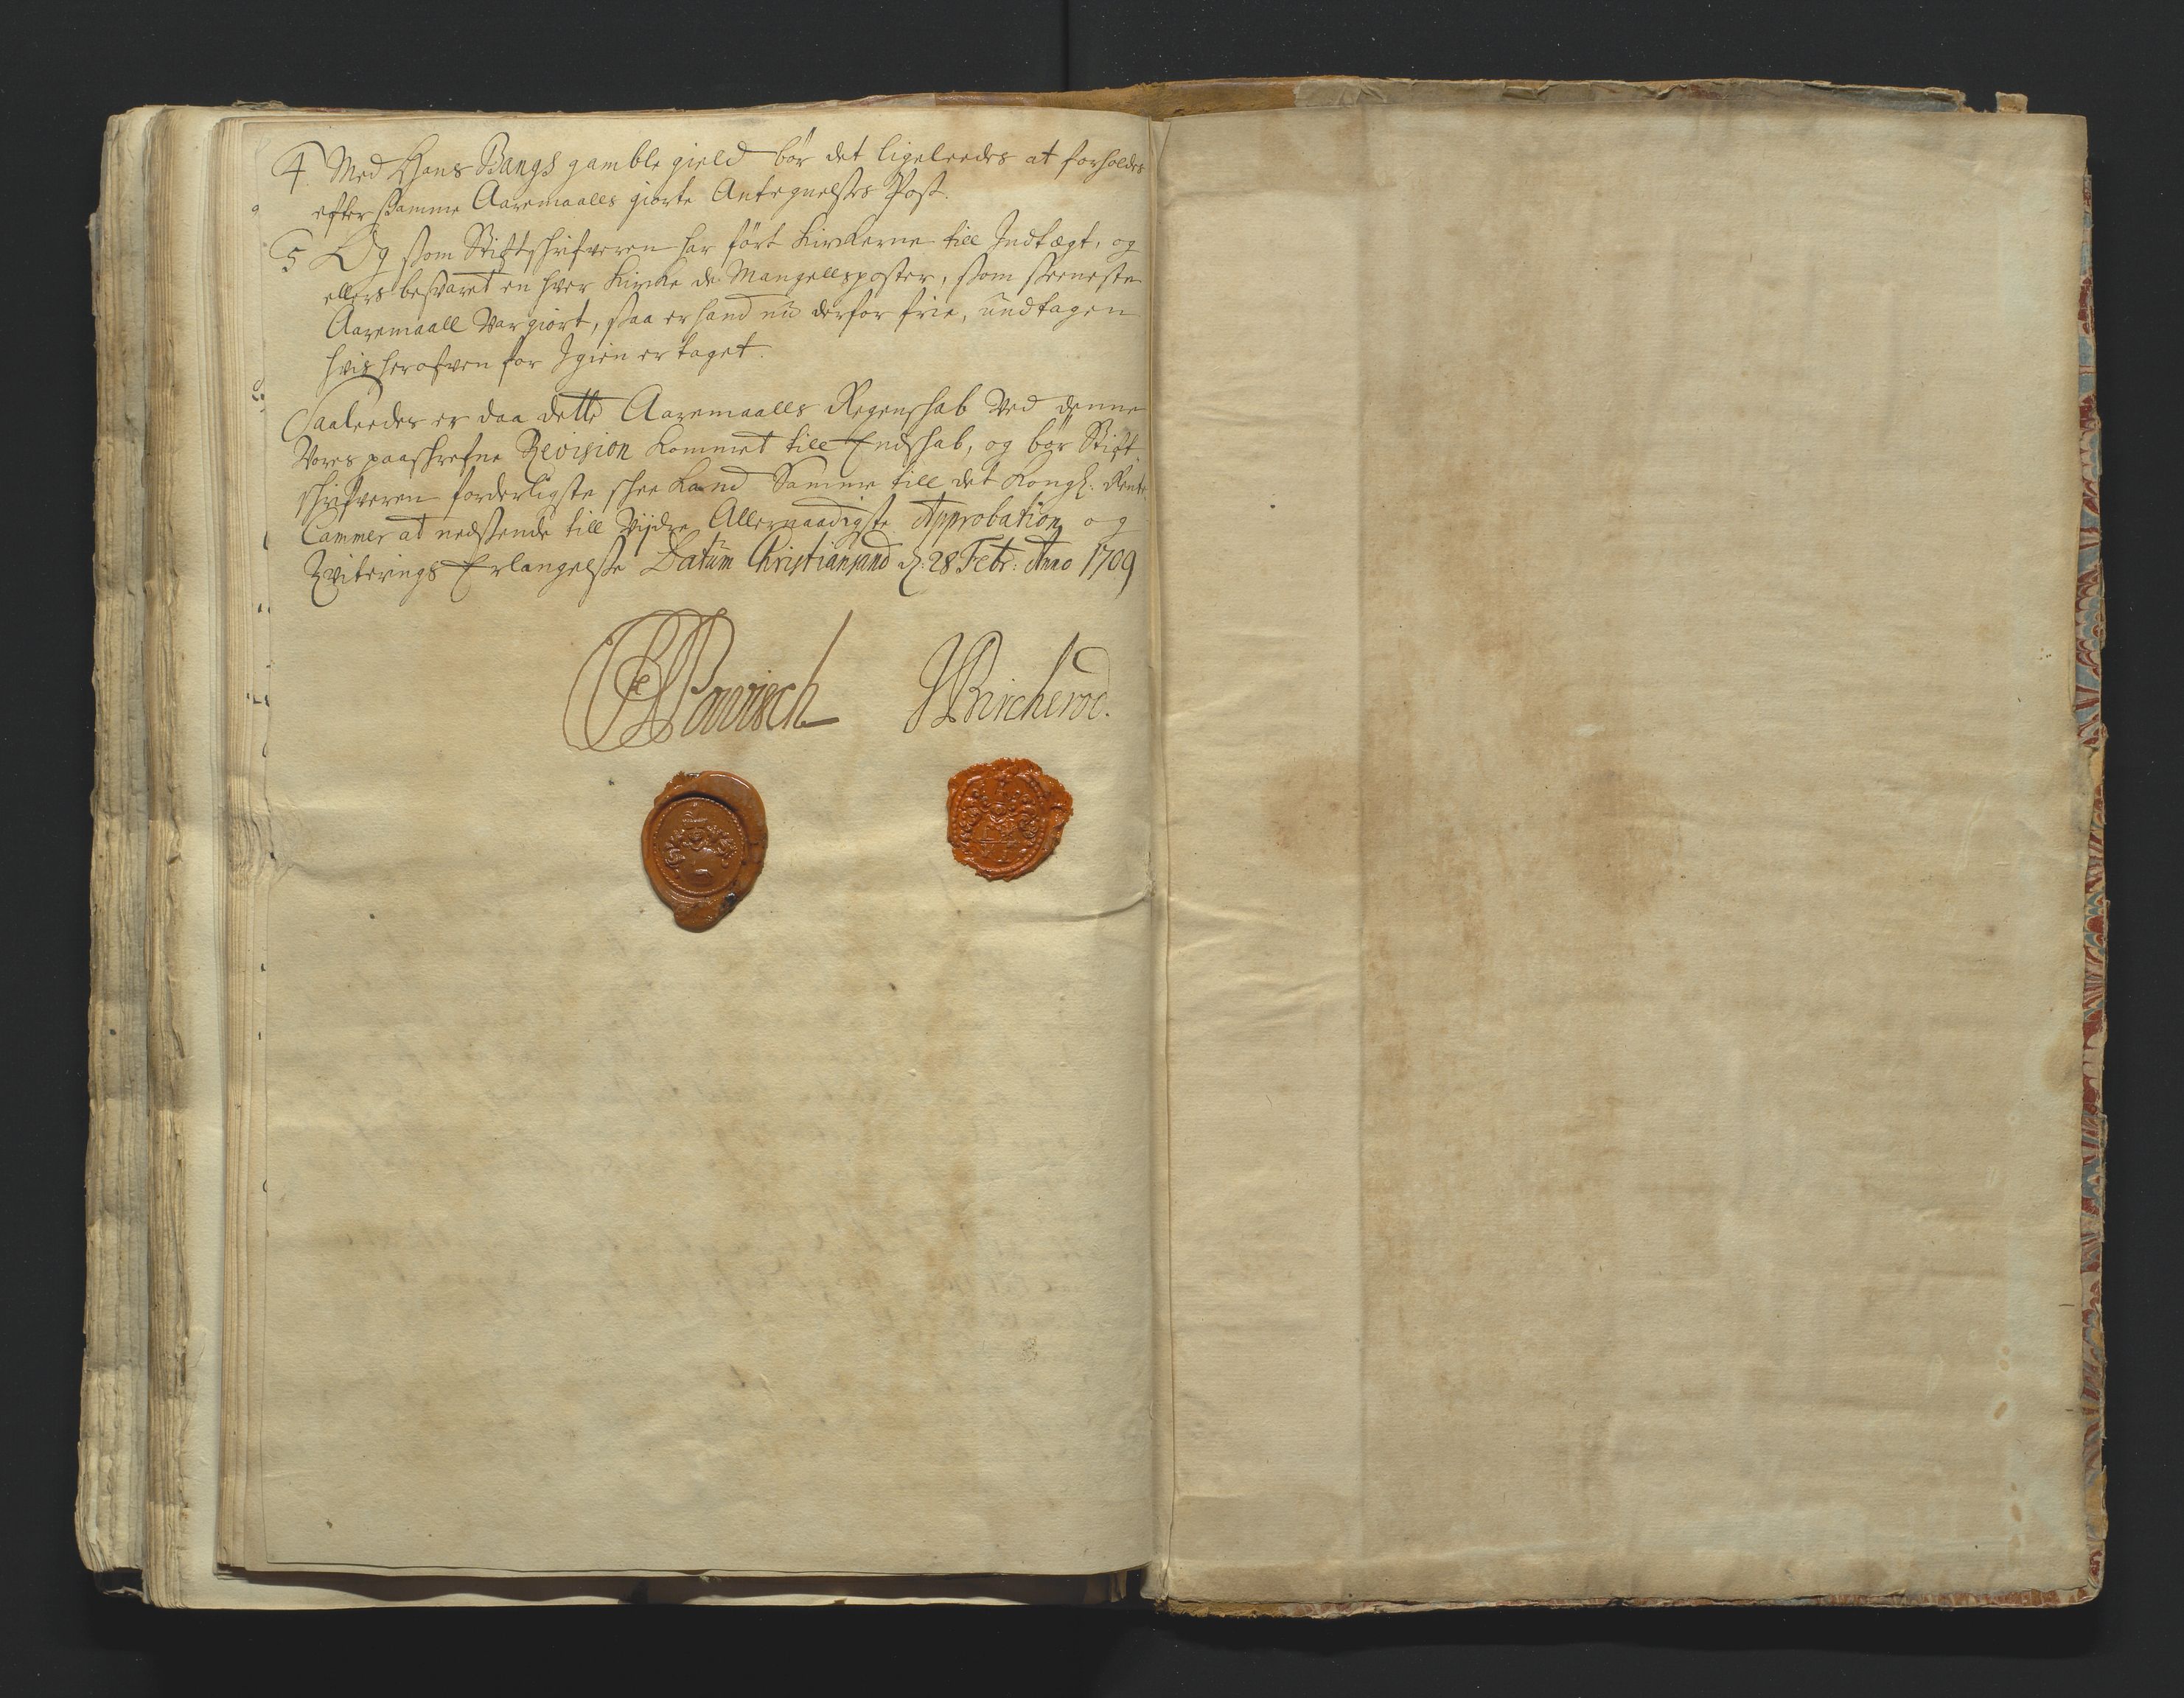 4. Med Hans Bangs gamble gield bör det ligeleedes at forholdes
efter samme Aaremaalls giorte Antegnelses Post.
5 Og som Stiftschrifveren har fört Kirckerne till Indtægt, og
ellers besvaret en hver Kircke de Mangellsposter, som seeneste
Aaremaall var giort, saa er hand nu derfor frie, undtagen
hvis herofven for Igien er taget.
Saaleedes er daa dette Aaremaalls Regenschab ved denne
Vores paaschrefne Revision kommet till Endschab, og bör Stift
schrifveren forderligste schee kand Samme till det Kongl: Rente
Cammer at nedsende till Vijdre Allernaadigste Approbation og
Qviterings Erlangelse Datum Christiansand d: 28 Febr: Anno 1709
Powisch
JBircherod.